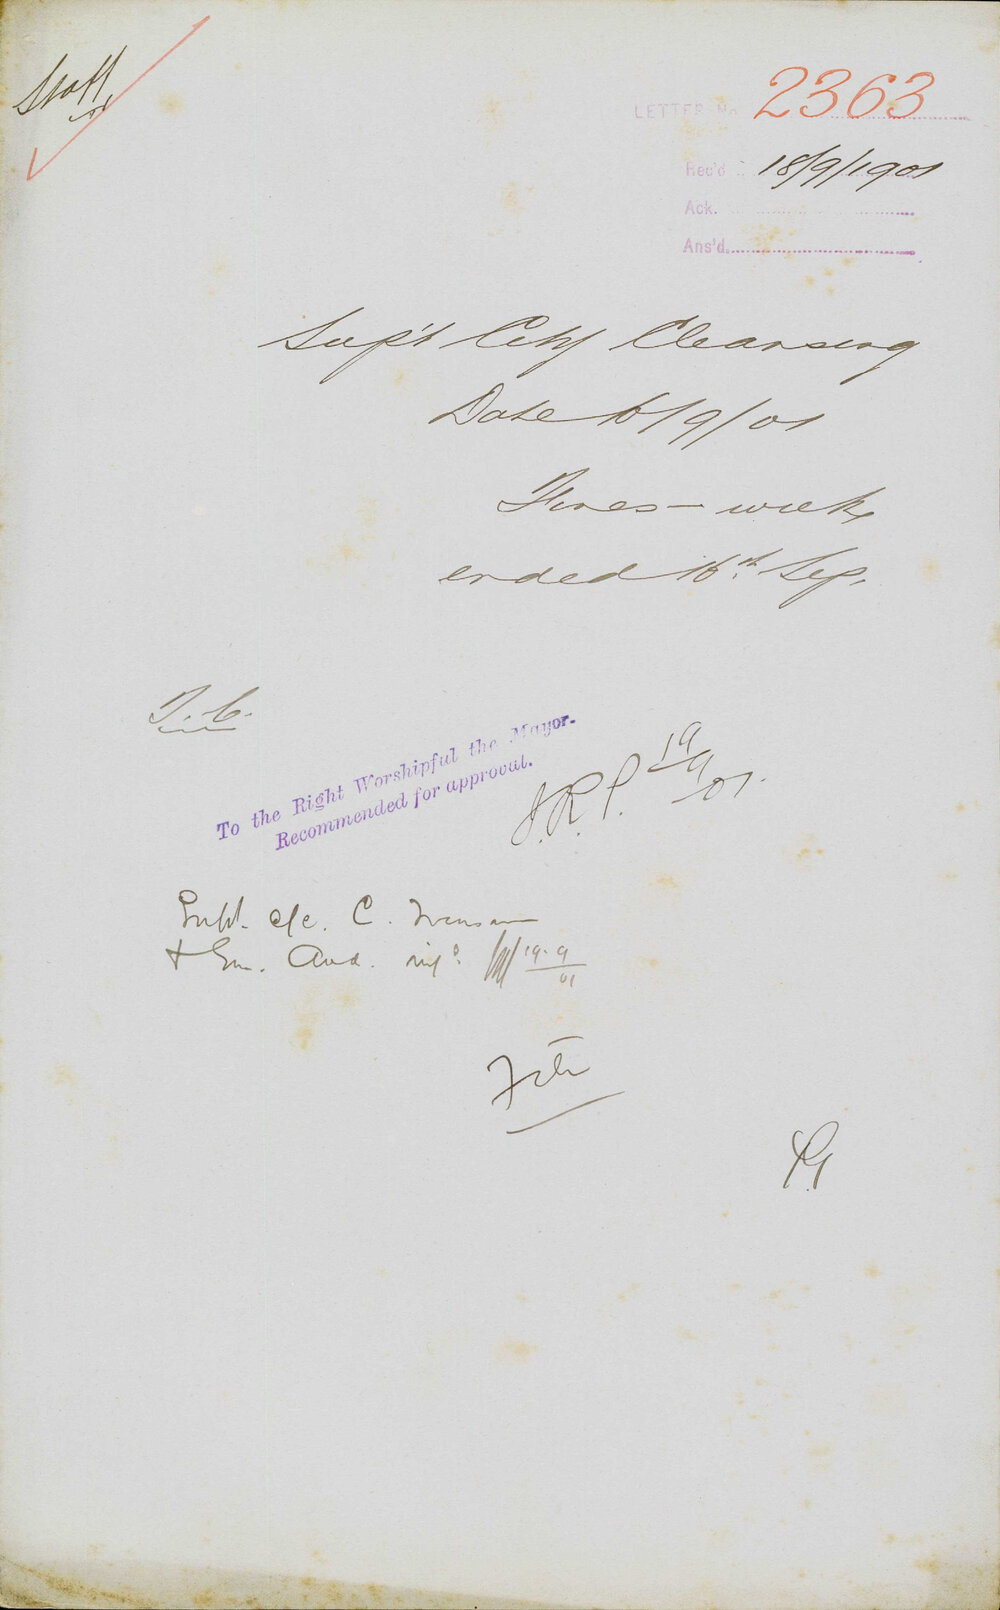 Staff
LETTER No 2363
Rec'd 18/9/1901
Ack.
Ans'd.
Sup't City Cleansing
Date 16/9/01
Fines - week
ended 16th Sep.
T.C.
To the Right Worshipful the Mayor.
Recommended for approval.
J.R.P. 19/9/01.
Supt. c/c. C. Treasurer
19.9/01